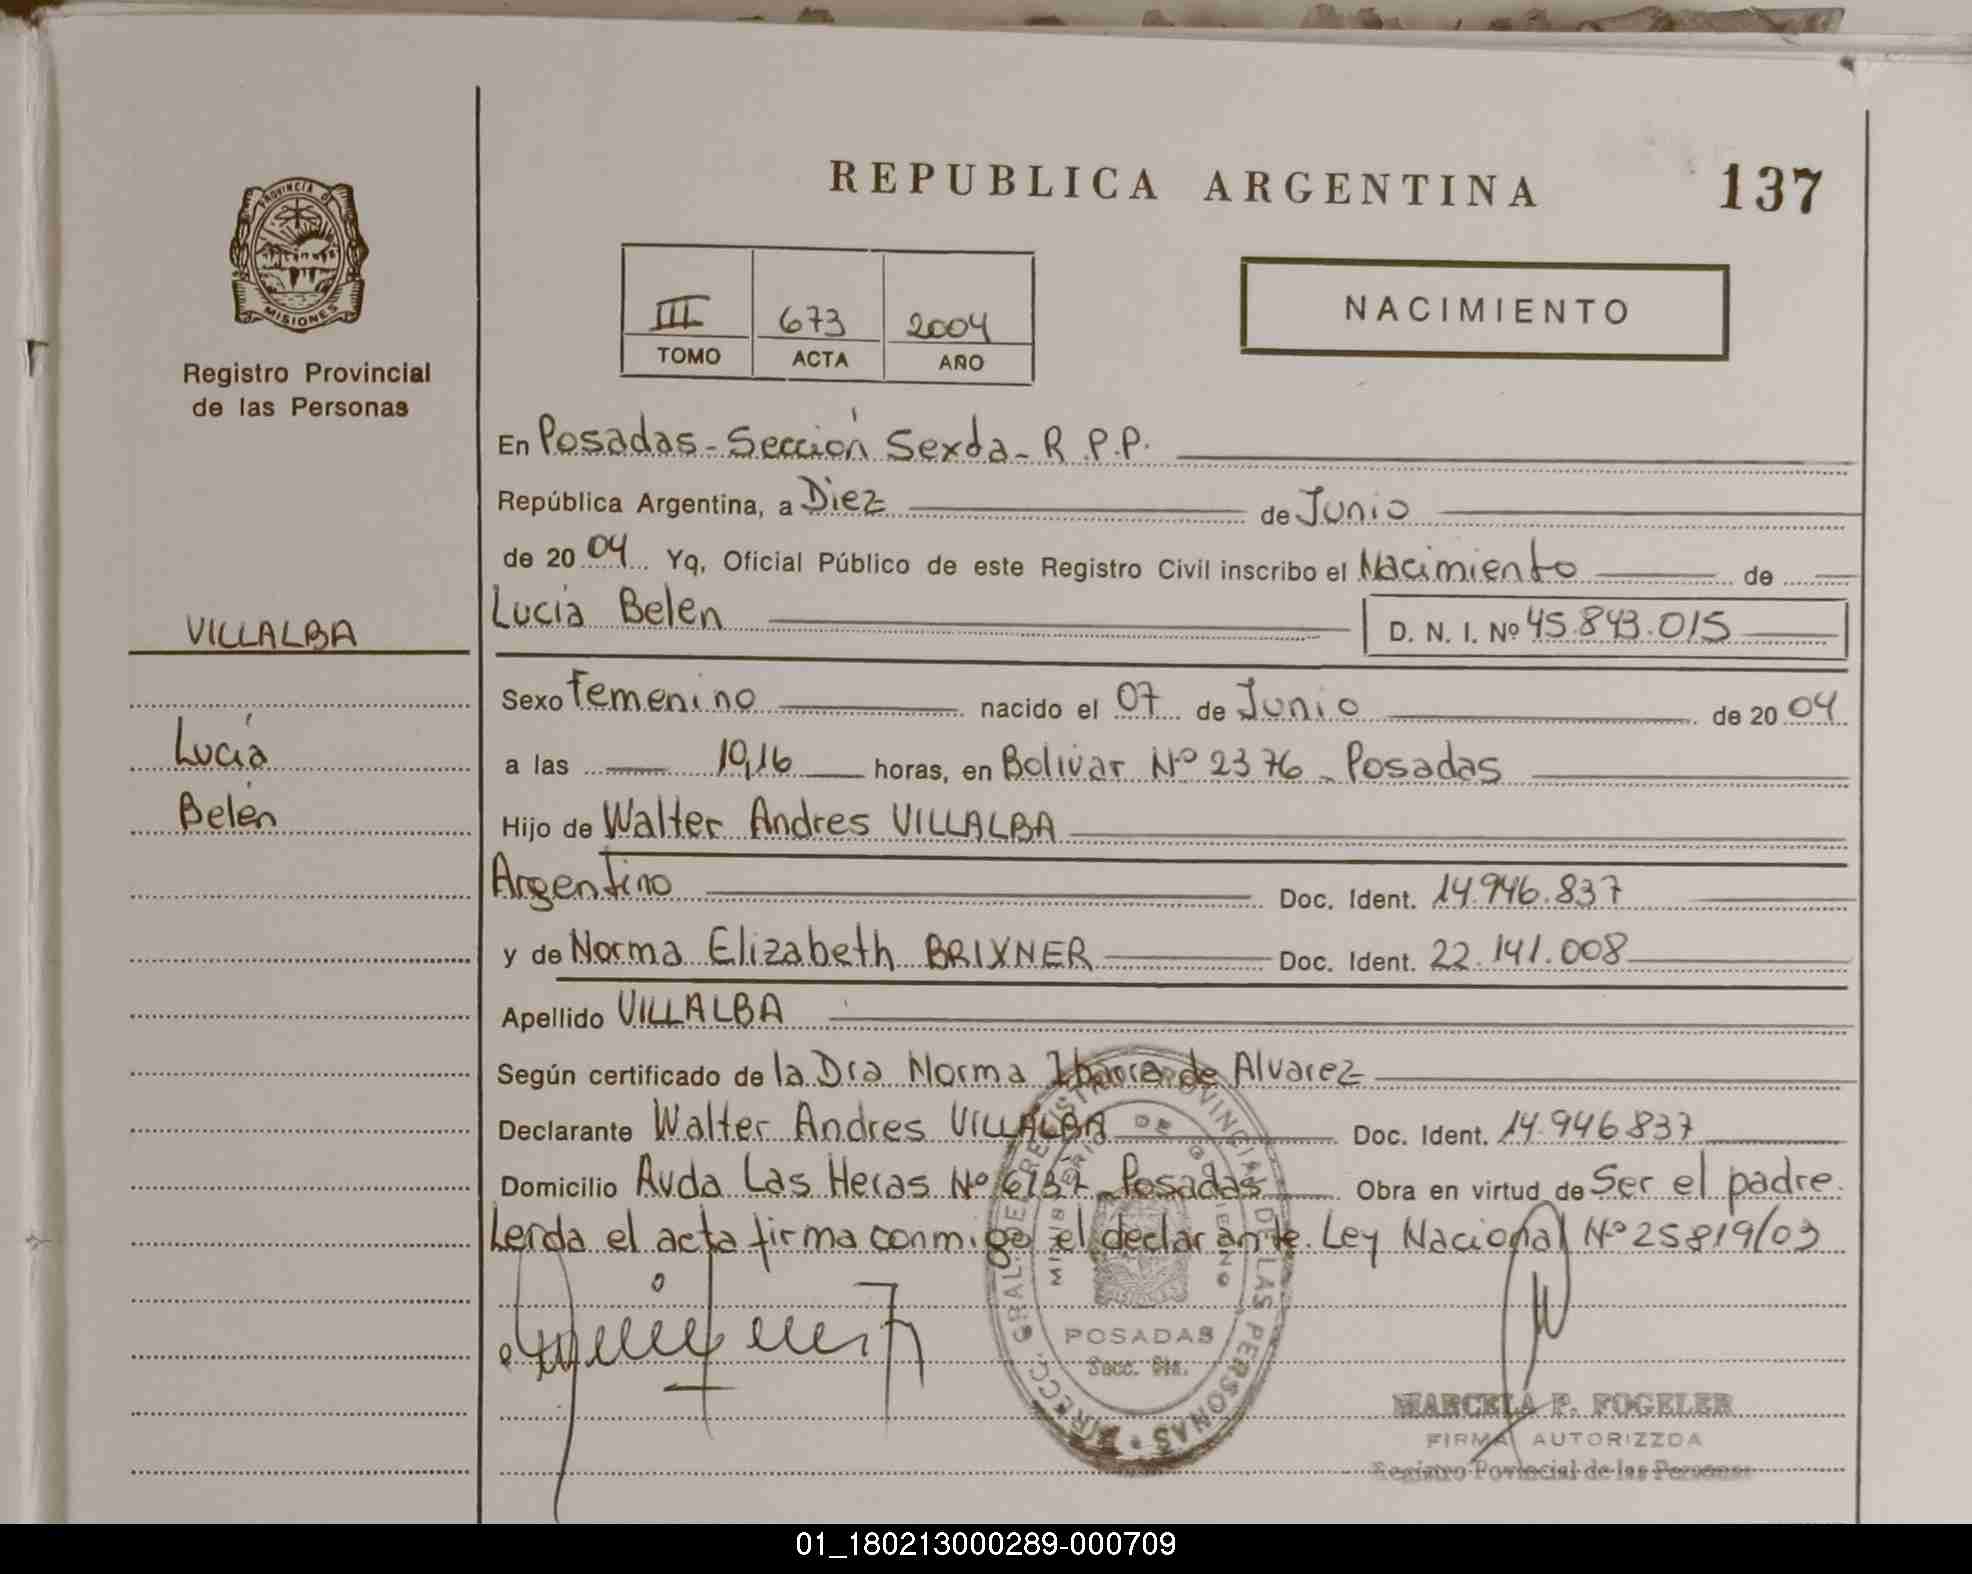 REPUBLICA ARGENTINA
137
PROVINCIA DE
MISIONES
Registro Provincial
de las Personas
III 673 2004
TOMO ACTA AÑO
NACIMIENTO
En Posadas - Sección Sexta - R.P.P.
República Argentina, a Diez de Junio
de 2004 Yo, Oficial Público de este Registro Civil inscribo el Nacimiento de
Lucia Belen D. N. I. Nº 45.843.015
VILLALBA
Lucía
Belén
Sexo Femenino nacido el 07 de Junio de 2004
a las 10,16 horas, en Bolivar Nº 2376 - Posadas
Hijo de Walter Andres VILLALBA
Argentino Doc. Ident. 14.946.837
y de Norma Elizabeth BRIXNER Doc. Ident. 22.141.008
Apellido VILLALBA
Según certificado de la Dra Norma Ibarra de Alvarez
Declarante Walter Andres VILLALBA Doc. Ident. 14.946.837
Domicilio Avda Las Heras Nº 6737 - Posadas Obra en virtud de Ser el padre.
Leida el acta firma conmigo el declarante. Ley Nacional Nº 25819/03
DIRECC. GRAL. DE REGISTRO PROVINCIAL DE LAS PERSONAS
MINISTERIO DE GOBIERNO
POSADAS
Secc. 6ta.
MARCELA F. FOGELER
FIRMA AUTORIZZDA
Registro Povincial de las Personas
01_180213000289-000709